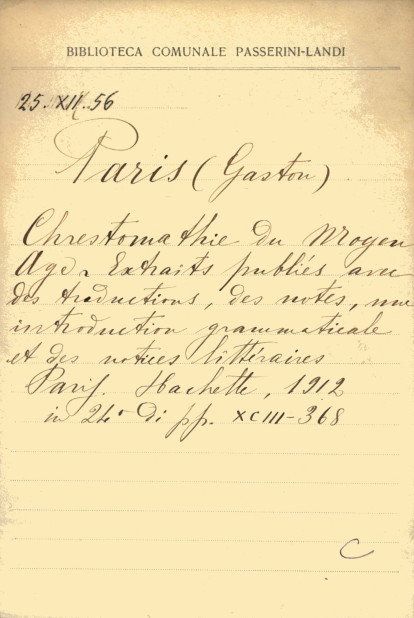 BIBLIOTECA COMUNALE PASSERINI-LANDI
25. XII. 56
Paris (Gaston)
Chrestomathie du Moyen
Age. Extraits publiés avec
des traductions, des notes, une
introduction grammaticale
et des notices littéraires
Paris. Hachette, 1912
in 24° di pp. XCIII-368
C